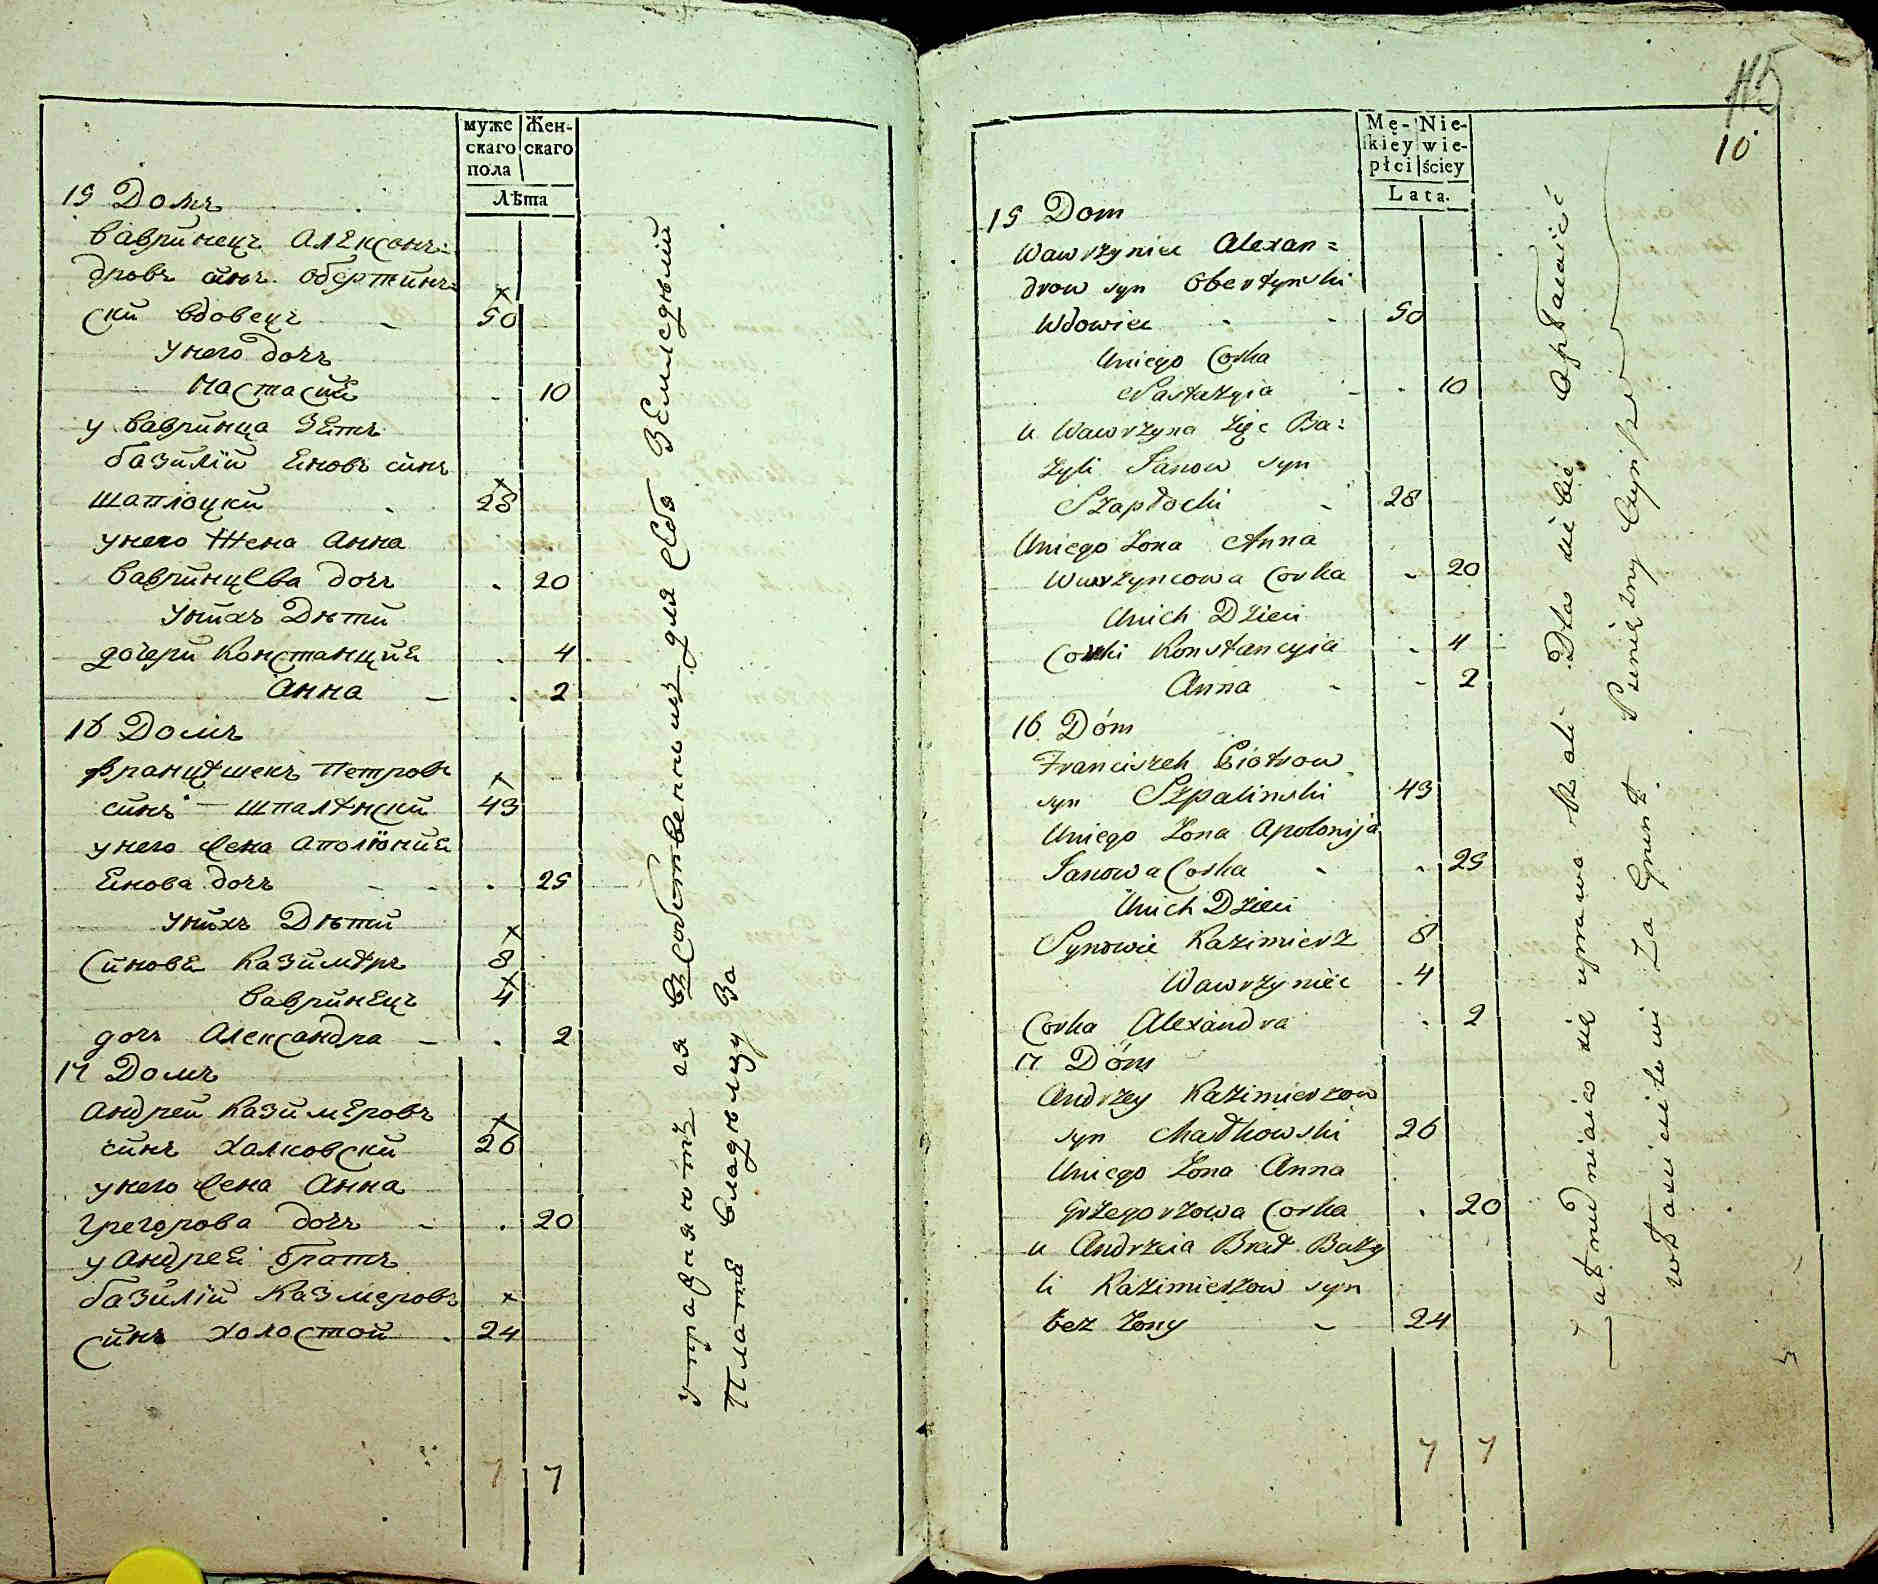 муже скаго пола
Жен- скаго
Лѣта
15 Домъ
Вавринецъ Алексонъ=
дровъ синъ Обертинъ=
ски вдовецъ - 50
у него дочъ
Настасия . 10
у Вавринца Зетъ
базилiи Еновъ синъ
шаплоцки . 28
у него Жена Анна
Вавринцева дочъ . 20
у нихъ Дѣти
дочери Констанция . 4
Анна - . 2
16 Домъ
Францишекъ Петровъ
синъ - шпалѣнски 43
у него жена Аполюния
Енова дочъ - . 25
у нихъ Дѣти
Синове Казимѣръ 8
Вавринецъ 4
дочъ Александра - . 2
17 Домъ
Андрей Казимеровъ
синъ Халковски 26
у него жена Анна
Грегорова дочъ - . 20
у Андрея братъ
базилiи Казмеровъ
синъ холостой . 24
7 7
упражняютъ ся въ собственнымъ для себя
Платя владѣлцу За
115
10
Mę- kiey płci
Nie- wie- ściey
Lata.
15 Dom
Wawrzyniec Alexan=
drow syn Obertynski
Wdowiec - - 50
Uniego Corka
Nastazyia - . 10
u Wawrzyna Zięc Ba=
zyli Janow syn
Szapłocki - 28
Uniego Zona Anna
Wawrzyncowa Corka - 20
Unich Dzieci
Corki Konstancyia . 4
Anna - - 2
16 Dóm
Franciszek Piotrow
syn Szpalinski 43
Uniego Zona Apolonija
Janowa Corka - . 25
Unich Dzieci
Synowie Kazimierz 8
Wawrzyniec . 4
Corka Alexandra . 2
17 Dóm
Andrzey Kazimierzow
syn Chałkowski 26
Uniego Zona Anna
Grzegorzowa Corka . 20
u Andrzeia Brat Bazy
li Kazimierzow syn
bez Zony - 24
7 7
Zatrudniaia się uprawa Roli Dla siebie Opłacaiąć
własicielowi Za Grunt Pieniężny Czynsz